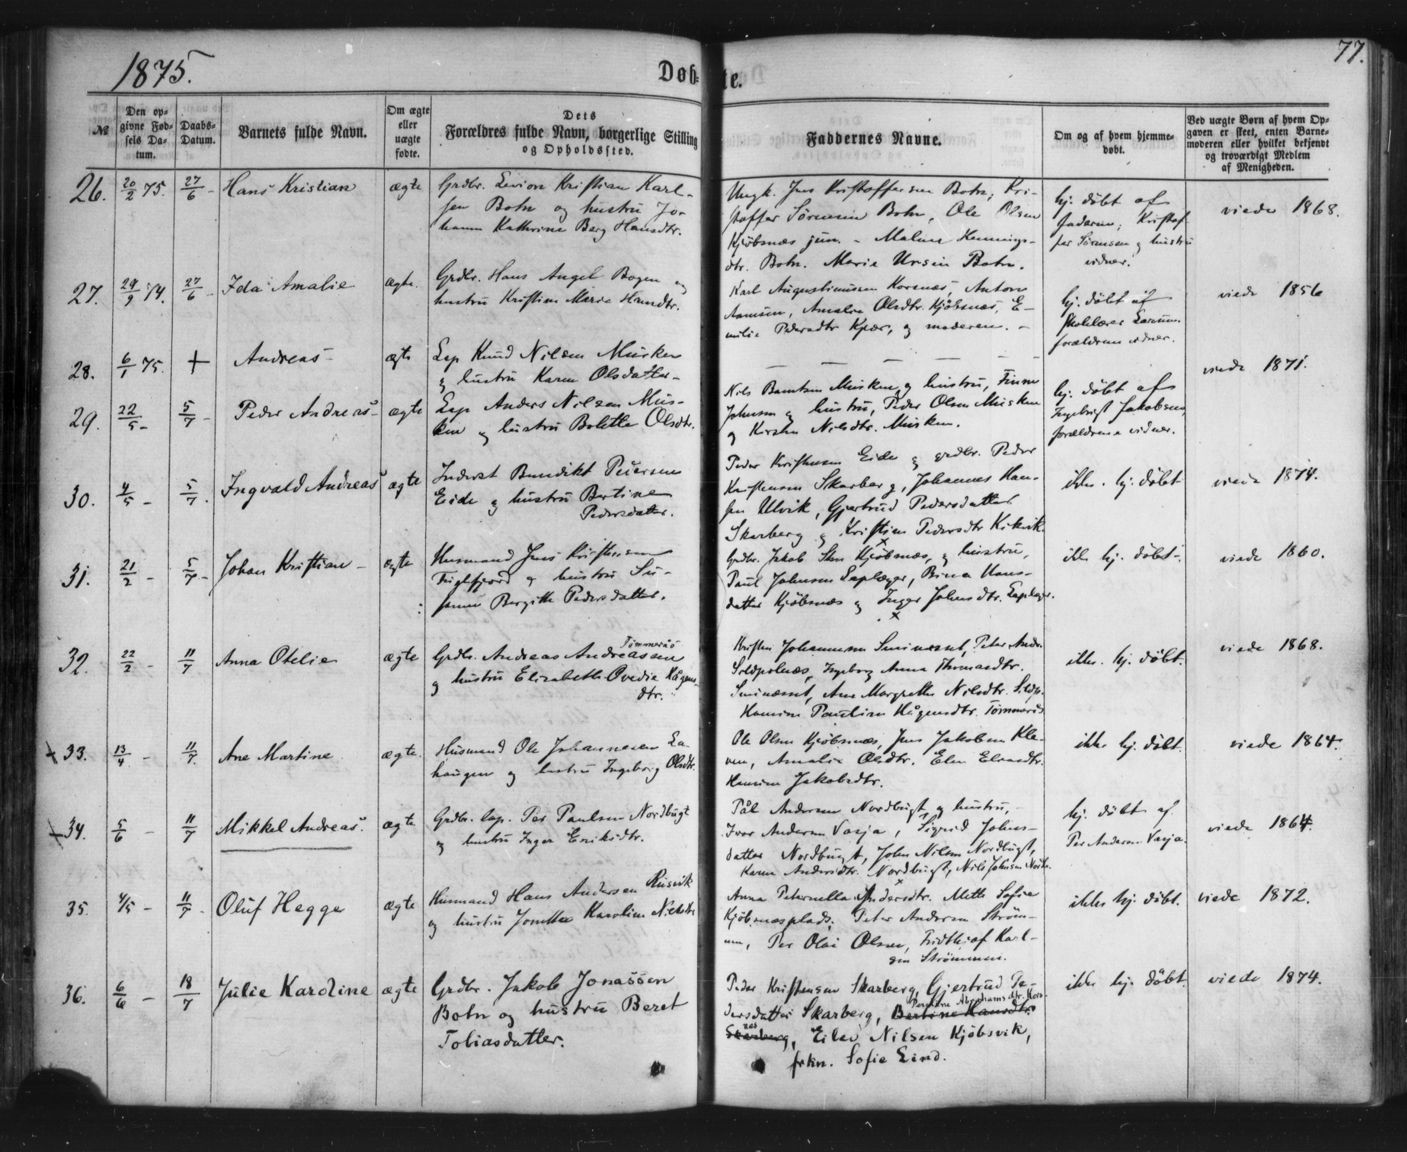 1875.
Døbte.
77.
№
Den opgivne Fødsels Datum.
Daabs-Datum.
Barnets fulde Navn.
Om ægte eller uægte fødte.
Dets Forældres fulde Navn, borgerlige Stilling og Opholdssted.
Faddernes Navne.
Om og af hvem hjemmedøbt.
Ved uægte Børn af hvem Opgaven er skeet, enten Barnemoderen eller hvilket bekjendt og troværdigt Medlem af Menigheden.
26. 20/2 75. 27/6 Hans Kristian ægte
Grdbr. Kristian Karl-
sen Botn og hustru Jo-
hanna Kathrine Berg Hansdtr.
Ungk. Jens Kristoffersen Botn, Kri-
stoffer Sørensen Botn, Ole Olsen
Kjøbsnæs jun. - Malene Hennings-
dtr. Botn. Maria Ursin Botn.
hj. døbt af
Faderen; Kristof-
fer Sørensen og hustru
vidner.
viede 1868.
27. 29/9 74. 27/6 - Ida Amalie ægte
Grdbr. Hans Angel Bogen og
hustru Kristine Marie Hansdtr.
Karl Augustinussen Korsnæs, Anton
Amalie Olsdtr. Kjøbsnæs, E-
milie Pedersdtr og moderen. -
hj. døbt af
Skolelærer
forældrene vidner.
viede 1856
28. 6/1 75. + Andreas - ægte
Lap Knud Nilsen Musken
og hustru Karen Olsdatter -
viede 1871.
29. 22/5 - 5/7 - Peder Andreas - ægte
Lap Anders Nilsen Mus-
ken og hustru Boletta Olsdtr.
Nils Musken og hustru, Finne
Johnsen og hustru, Peder Olsen Musken
og Kirsten Nilsdtr. Musken.
hj. døbt af
Ingebrigt Jakobsen
forældrene vidner.
30. 4/5 - 5/7 . Ingvald Andreas ægte
Inderst Bendikt Petersen
Eide og hustru Bertine
Pedersdatter.
Peder Kristensen Eide og grdbr. Peder
Kristensen Skarberg, Johannes Han-
sen Ulvik, Gjertrud Pedersdatter
Skarberg og Kristine Pedersdtr.
ikke hj. døbt
viede 1874.
31. 21/2 - 5/7 - Johan Kristian - ægte
Husmand Jens Kristensen
Fuglfjord og hustru Su-
sanne Bergitte Pedersdatter.
Grdbr. Jakob Kjøbsnæs, og hustru,
Paul Johnsen Hans-
datter Kjøbsnæs og Inger Johnsdtr.
ikke hj. døbt -
viede 1860.
32. 22/2 - 11/7 Anna Otelie ægte
Tømmeraas
Grdbr. Andreas Andreassen
og hustru Elizabeth Ovedie Hågens-
dtr.
Kristen Johannessen Peter Andr.
Ingeborg Anna Thomasdtr.
Ane Margrethe Nilsdtr.
Paulina Hågensdtr. Tømmeraas
ikke hj. døbt.
viede 1868.
33. 13/4 - 11/7 Ane Martine ægte
Husmand Ole Johannesen La-
haugen og hustru Ingeborg Olsdtr.
Ole Olsen Kjøbsnæs, Jens Jakobsen Kle-
ven, Amalie Olsdtr.
Jakobsdtr.
ikke hj. døbt
viede 1864.
34. 5/6 - 11/7 Mikkel Andreas ægte
Grdbr. lap. Per Paulsen Nordbugt
og hustru Inger Eriksdtr.
Pål Andersen Nordbugt og hustru, -
Iver Andersen Varja, Sigrid Johns-
datter Nordbugt, John Nilsen Nordbugt,
Karen Andersdtr. Nordbugt, Nils Johnsen
hj. døbt af
Per Andersen Varja.
viede 1864.
35. 4/5 - 11/7 . Oluf Hegge ægte
Husmand Hans Andersen Rusvik
og hustru Jonetta Karoline
Anna Peternella Andersdtr. Mette Sofie
Kjøbsnæsplads, Peter Andersen Strøm-
nen, Per Olai Olsen, Fridthjof Karl-
sen Strømmen.
ikke hj. døbt.
viede 1872.
36. 6/6 - 18/7 Julie Karoline ægte
Grdbr. Jakob Jonassen
Botn og hustru Beret
Tobiasdatter.
Peder Kristensen Skarberg, Gjertrud Pe-
dersdatter Skarberg, Bertine Hansdtr
Skarberg, Eilev Nilsen Kjøbsvik,
frkn. Sofie Lind.
ikke hj. døbt.
viede 1874.